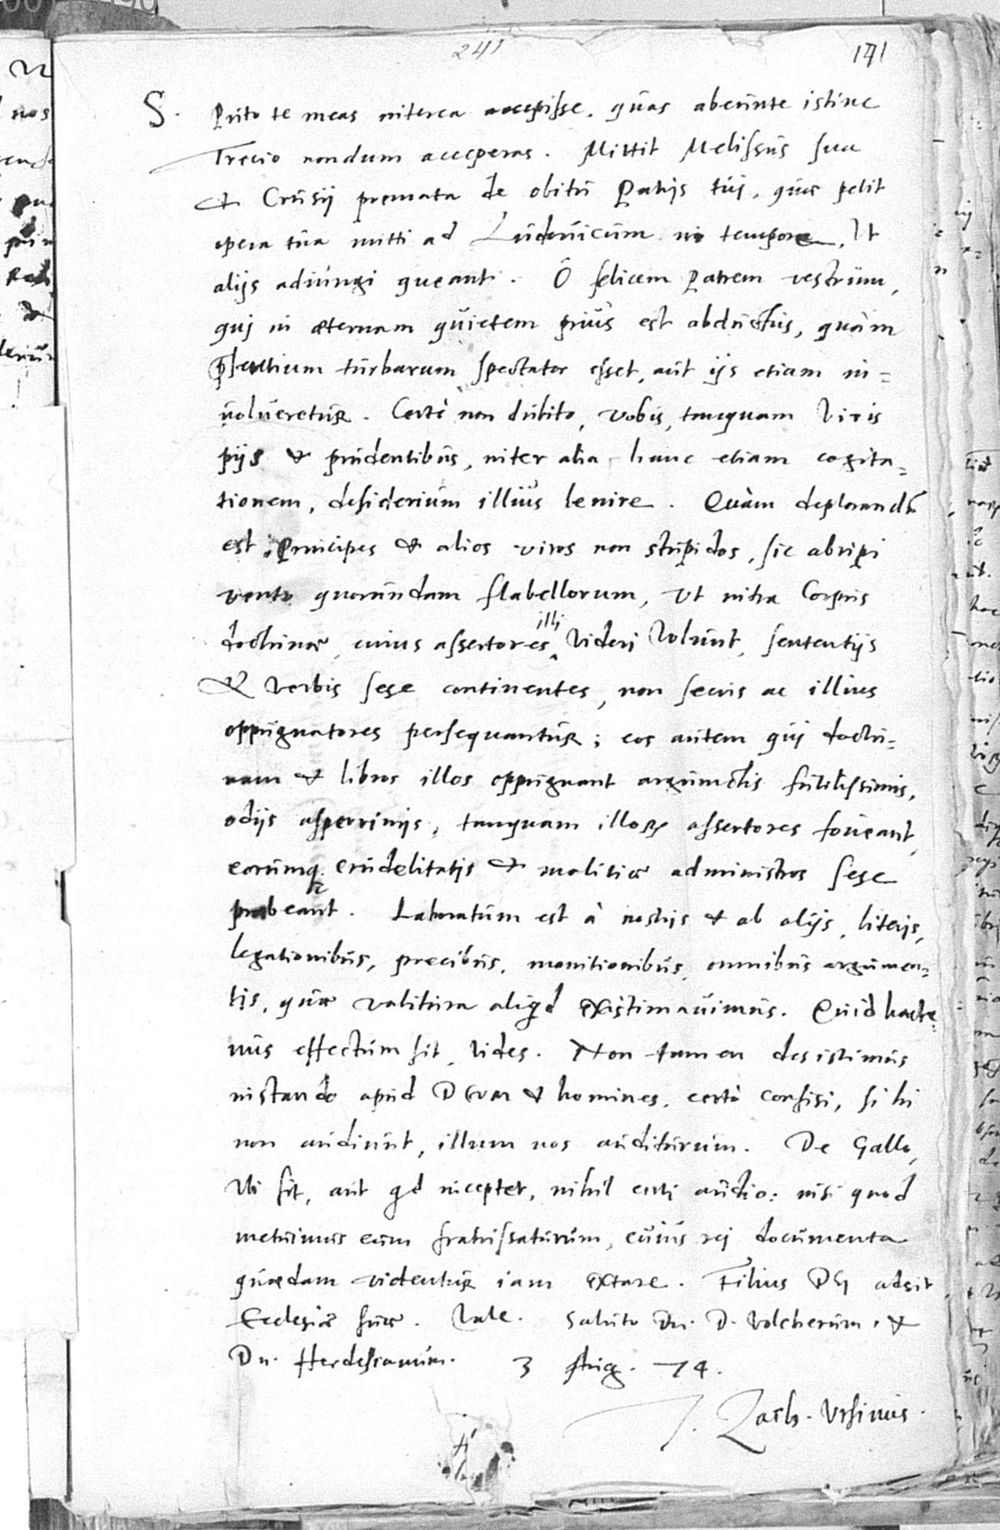 241
191
S. Puto te meas interea accepisse, quas abeunte istinc
Trecio nondum acceperas. Mittit Melissus sua
& Crusij poemata de obitu Patris tui, quae petit
opera tua mitti ad Ludovicum in tempore, Ut
alijs adiungi queant. O felicem Patrem vestrum,
qui in aeternam quietem prius est abductus, quàm
praesentium turbarum spectator esset, aut ijs etiam in=
volveretur. Certè non dubito, vobis, tanquam Viris
pijs & prudentibus, inter alia hanc etiam cogita=
tionem, desiderium illius lenire. Quàm deplorandum
est, Principes & alios viros non stupidos, sic abripi
vento quorundam flabellorum, Ut intra Corporis
doctrinae, cuius assertores illi Videri Volunt, sententijs
& Verbis sese continentes, non secus ac illius
oppugnatores persequantur; eos autem qui doctri=
nam & libros illos oppugnant argumentis futilissimis,
odijs asperrimis, tanquam illorum assertores foveant,
eorumq. crudelitatis & malitiae administros sese
praebeant. Laboratum est à nostris & ab alijs, literis,
legationibus, precibus, monitionibus, omnibus argumen=
tis, quae valitura aliquid existimavimus. Quid hacte=
nus effectum sit, Vides. Non tamen desistimus
instando apud Deum & homines, certò confisi, si hi
non audiunt, illum nos auditurum. De Gallo,
Ubi sit, aut quid inceptet, nihil certi audio: nisi quod
metuimus eum fratrissaturum, cuius rei documenta
quaedam videntur iam extare. Filius Dei adsit
Ecclesiae suae. Vale. Saluto Dn. D. Volcherum, &
Dn. Herdesianum. 3 Aug. 74.
T. Zach. Ursinus.